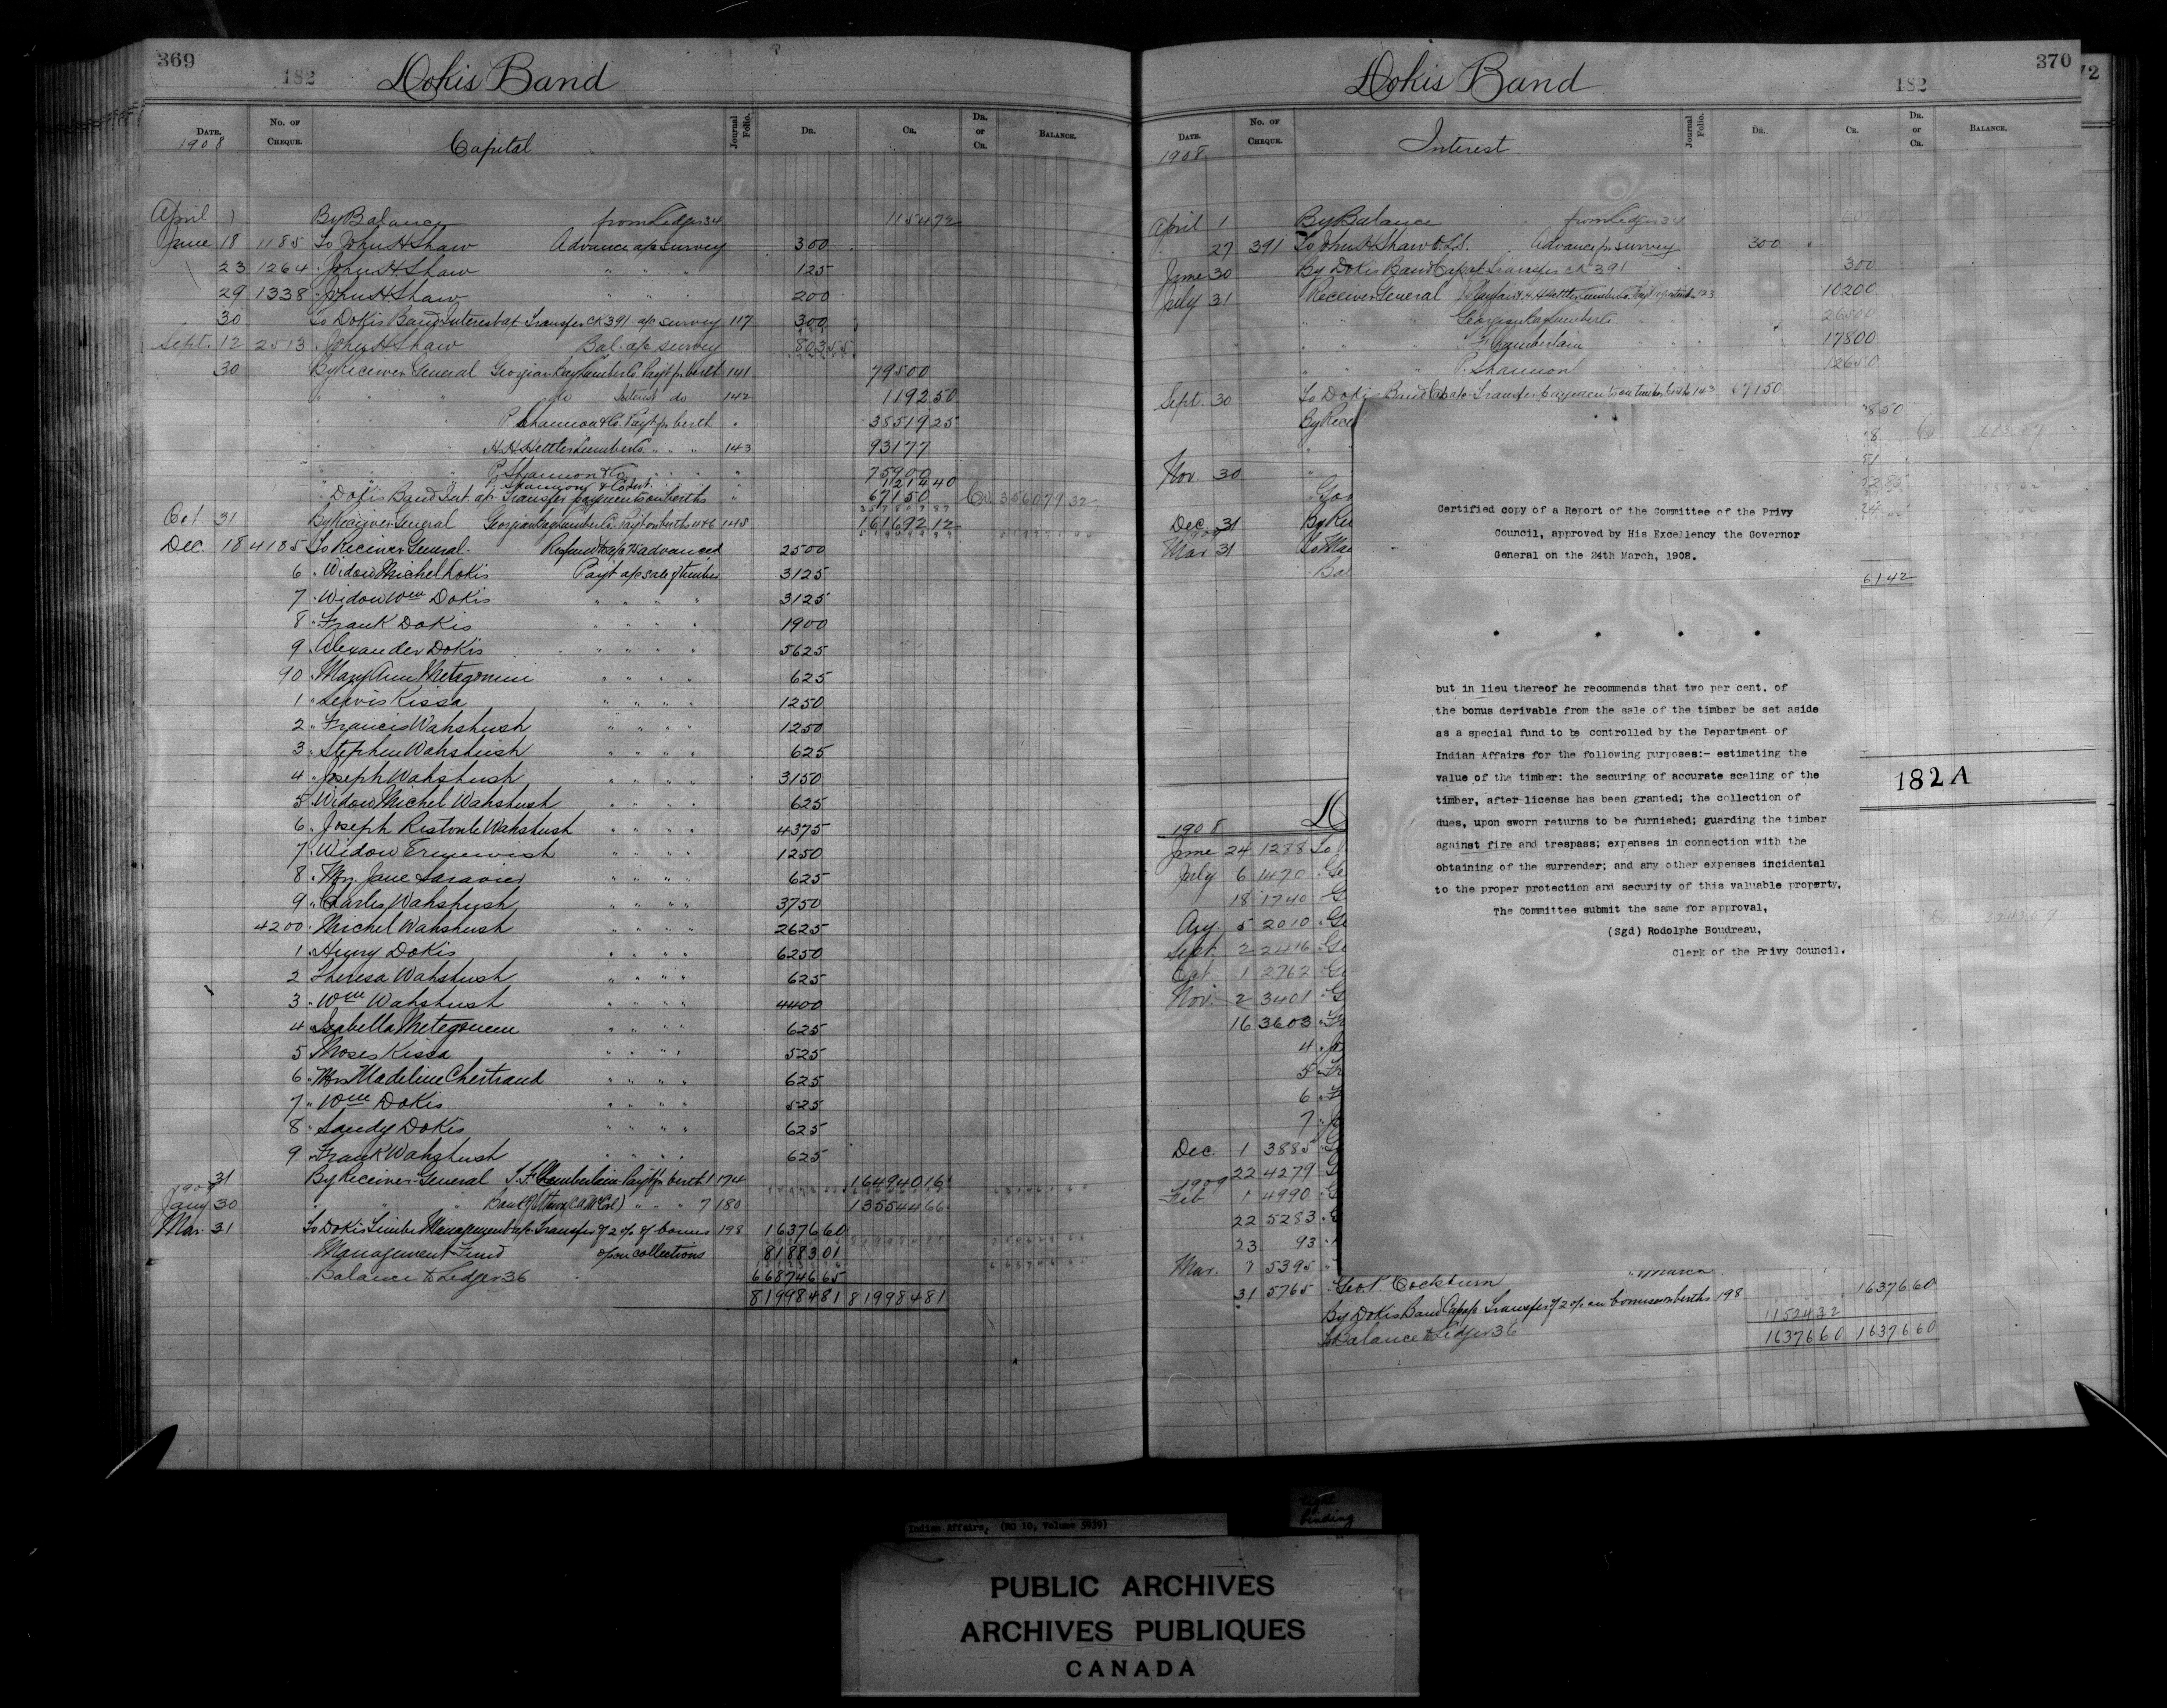 369
182 Dokis Band
DATE. No. OF CHEQUE. Journal Folio. DR. CR. DR. or CR. BALANCE.
1908 Capital
April 1 By Balance from Ledger 34 1154 72
June 18 1185 To John H Shaw Advance a/c survey 300
23 1264 " John H Shaw " " " 125
29 1338 " John H Shaw " " " 200
30 To Dokis Band Interest a/c Transfer CK 391 a/c survey 117 300
Sept. 12 2513 " John H Shaw Bal. a/c survey 803 55
30 By Receiver General Georgian Bay Lumber Co. Payt for berth 141 79500
" " " do Interest do 142 1192 50
P Shannon & Co. Payt for berth " 38519 25
" H. H. Hettler Lumber Co. " " " 143 931 77
" " " P. Shannon & Co. " " " " 75900
Shannon & Co Int. 1214 40
" Dokis Band Int. a/c Transfer payments on berths " 671 50 Cr. 356079 32
Oct. 31 By Receiver General Georgian Bay Lumber Co. Payt on berths 4 & 6 148 161692 12
Dec. 18 4185 To Receiver General. Refund advanced 2500
6 " Widow Michel Dokis Payt a/c sale of timber 3125
7 " Widow Wm Dokis " " " " 3125
8 " Frank Dokis " " " " 1900
9 " Alexander Dokis " " " " 5625
90 " Mary Ann Metagonini " " " " 625
1 " Lewis Kissa " " " " 1250
2 " Francis Wahshush " " " " 1250
3 " Stephen Wahshush " " " " 625
4 " Joseph Wahshush " " " " 3150
5 " Widow Michel Wahshush " " " " 625
6 " Joseph Restoule Wahshush " " " " 4375
7 " Widow " " " " 1250
8 " Mrs. Jane " " " " 625
9 " Charles Wahshush " " " " 3750
4200 " Michel Wahshush " " " " 2625
1 " Henry Dokis " " " " 6250
2 Theresa Wahshush " " " " 625
3 " Wm Wahshush " " " " 4400
4 " Isabella " " " " 625
5 " Moses Kissa " " " " 525
6 " Mrs Madeline Chestrand " " " " 625
7 " Wm Dokis " " " " 525
8 " Sandy Dokis " " " " 625
9 " Frank Wahshush " " " " 625
31 By Receiver General Chamberlain Payt for berth 1 174 164940 16
1909
Jany 30 " " " Bank of Ottawa " " " 7 180 135544 66
Mar. 31 To Dokis Timber Management a/c Transfer of 2% of bonus 198 16376 60
" Management Fund upon collections 81883 01
" Balance to Ledger 36 668746 65
819984 81 819984 81
370
Dokis Band 182
DATE. No. OF CHEQUE. Journal Folio. DR. CR. DR. or CR. BALANCE.
1908 Interest
April 1 By Balance from Ledger 34
27 391 To John H Shaw O.L.S. Advance for survey 300
June 30 By Dokis Band Cap a/c Transfer CK 391 300
July 31 " Receiver General 102 00
" " " Georgian Bay Lumber Co. 265 00
" " " Chamberlain " " 178 00
" " " P. Shannon 126 50
Sept. 30 To Dokis Band Cap a/c Transfer payments on timber berths 143 671 50
By Rece
Nov. 30 "
Dec. 31 By
1909
Mar 31
Bal
61 42
Certified copy of a Report of the Committee of the Privy
Council, approved by His Excellency the Governor
General on the 24th March, 1908.
. . . .
but in lieu thereof he recommends that two per cent. of
the bonus derivable from the sale of the timber be set aside
as a special fund to be controlled by the Department of
Indian Affairs for the following purposes:- estimating the
value of the timber: the securing of accurate scaling of the
timber, after license has been granted; the collection of
dues, upon sworn returns to be furnished; guarding the timber
against fire and trespass; expenses in connection with the
obtaining of the surrender; and any other expenses incidental
to the proper protection and security of this valuable property.
The Committee submit the same for approval,
(Sgd) Rodolphe Boudreau,
Clerk of the Privy Council.
182 A
1908 D
June 24 1288 To
July 6 1470 " Ge
18 1740 " G
Aug. 5 2010 " Ge
Sept. 2 2416 " Ge
Oct. 1 2762 " Ge
Nov. 2 3401 " G
16 3603 " Fr
4 "
5 " Fr
6 " F
7 "
Dec. 1 3885 " G
22 4279 " G
1909
Feb. 1 4990 " G
22 5283 "
23 93 "
Mar. 7 5395 " " March
31 5765 " Geo. P. Cockburn
By Dokis Band Cap a/c Transfer of 2% on bonus on berths 198 16376 60
To Balance to Ledger 36 11524 32
16376 60 16376 60
Indian Affairs, (RG 10, Volume 5939)
tight binding
PUBLIC ARCHIVES
ARCHIVES PUBLIQUES
CANADA